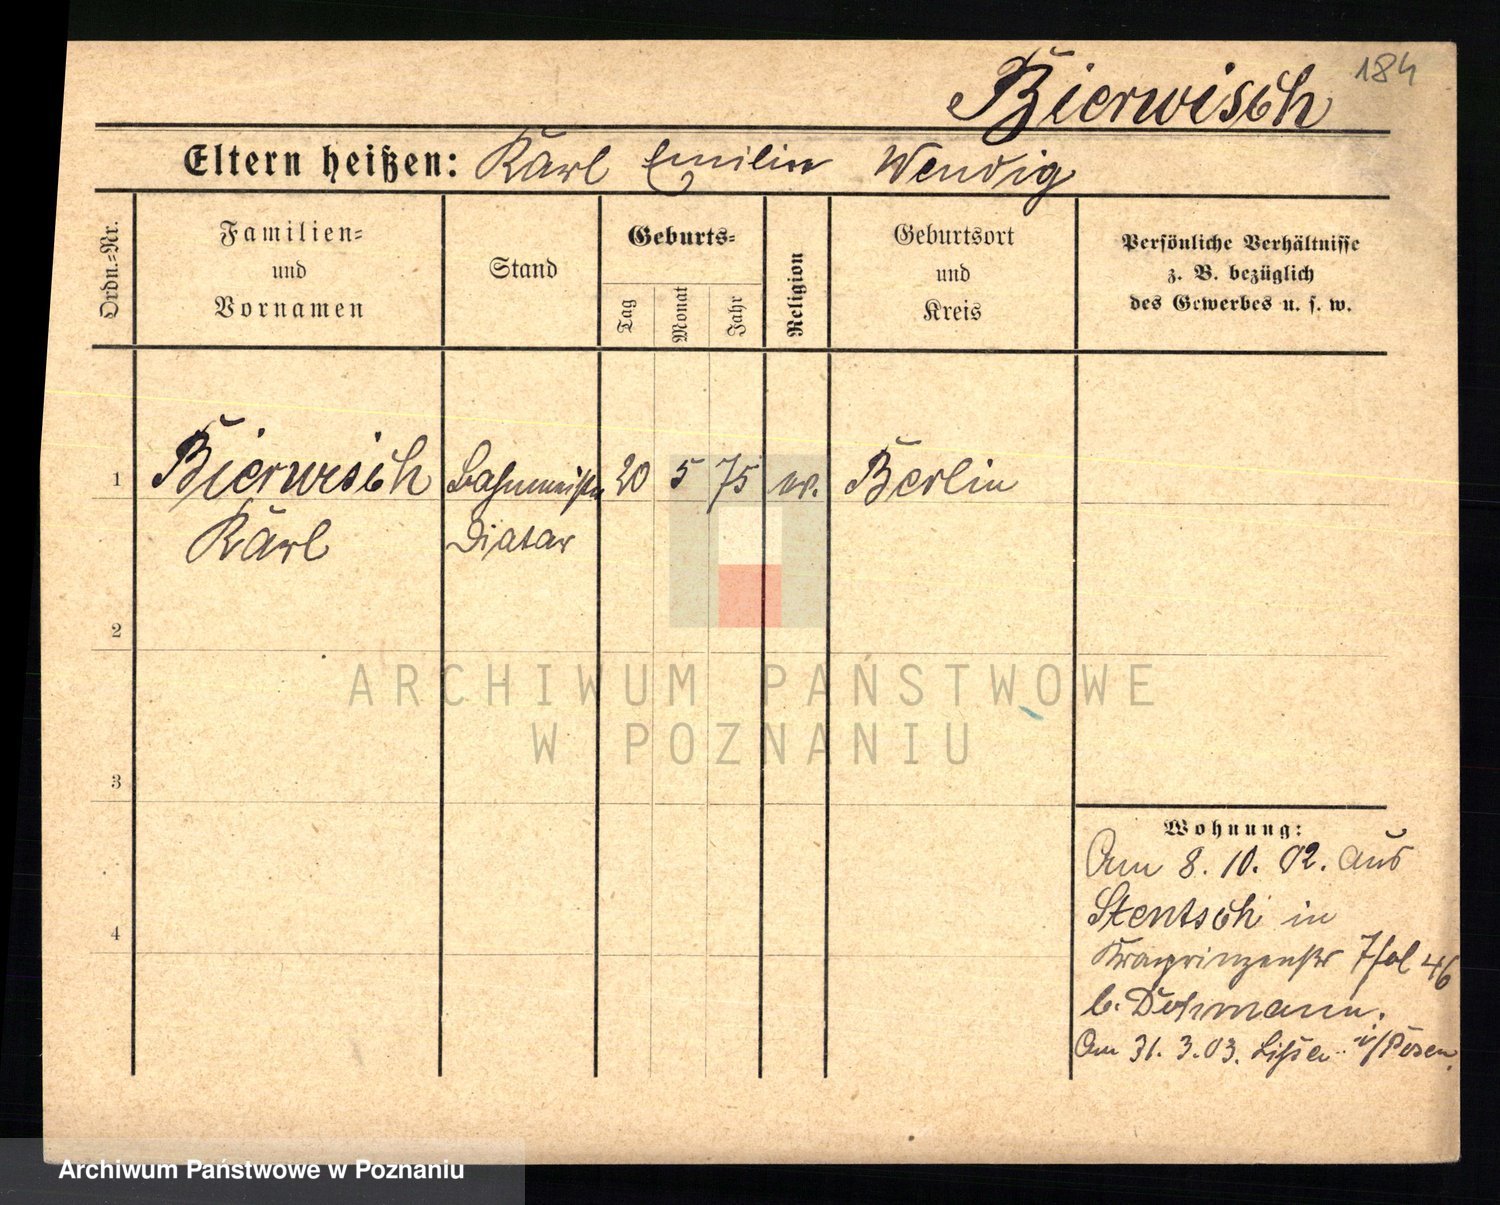 184
Bierwisch
Eltern heißen: Karl Emilie Wendig
Ordn.=Nr.
Familien=
und
Vornamen
Stand
Geburts=
Tag
Monat
Jahr
Religion
Geburtsort
und
Kreis
Persönliche Verhältnisse
z. B. bezüglich
des Gewerbes u. s. w.
1 Bierwisch Bahnmeister 20 5 75 ev. Berlin
Karl Diätar
2
3
4
Wohnung:
Am 8. 10. 02. aus
Stentsch in
Kronprinzenstr 46
b. Dohmann.
Am 31. 3. 03. Lissa i/Posen.
ARCHIWUM PAŃSTWOWE
W POZNANIU
Archiwum Państwowe w Poznaniu